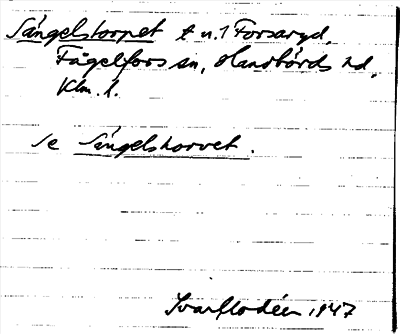 Sångelstorpet t u. 1 Forsaryd,
Fågelfors sn, Handbörds hd,
Klm. l.
se Sångelshorvet.
Ivar Modéer 1947